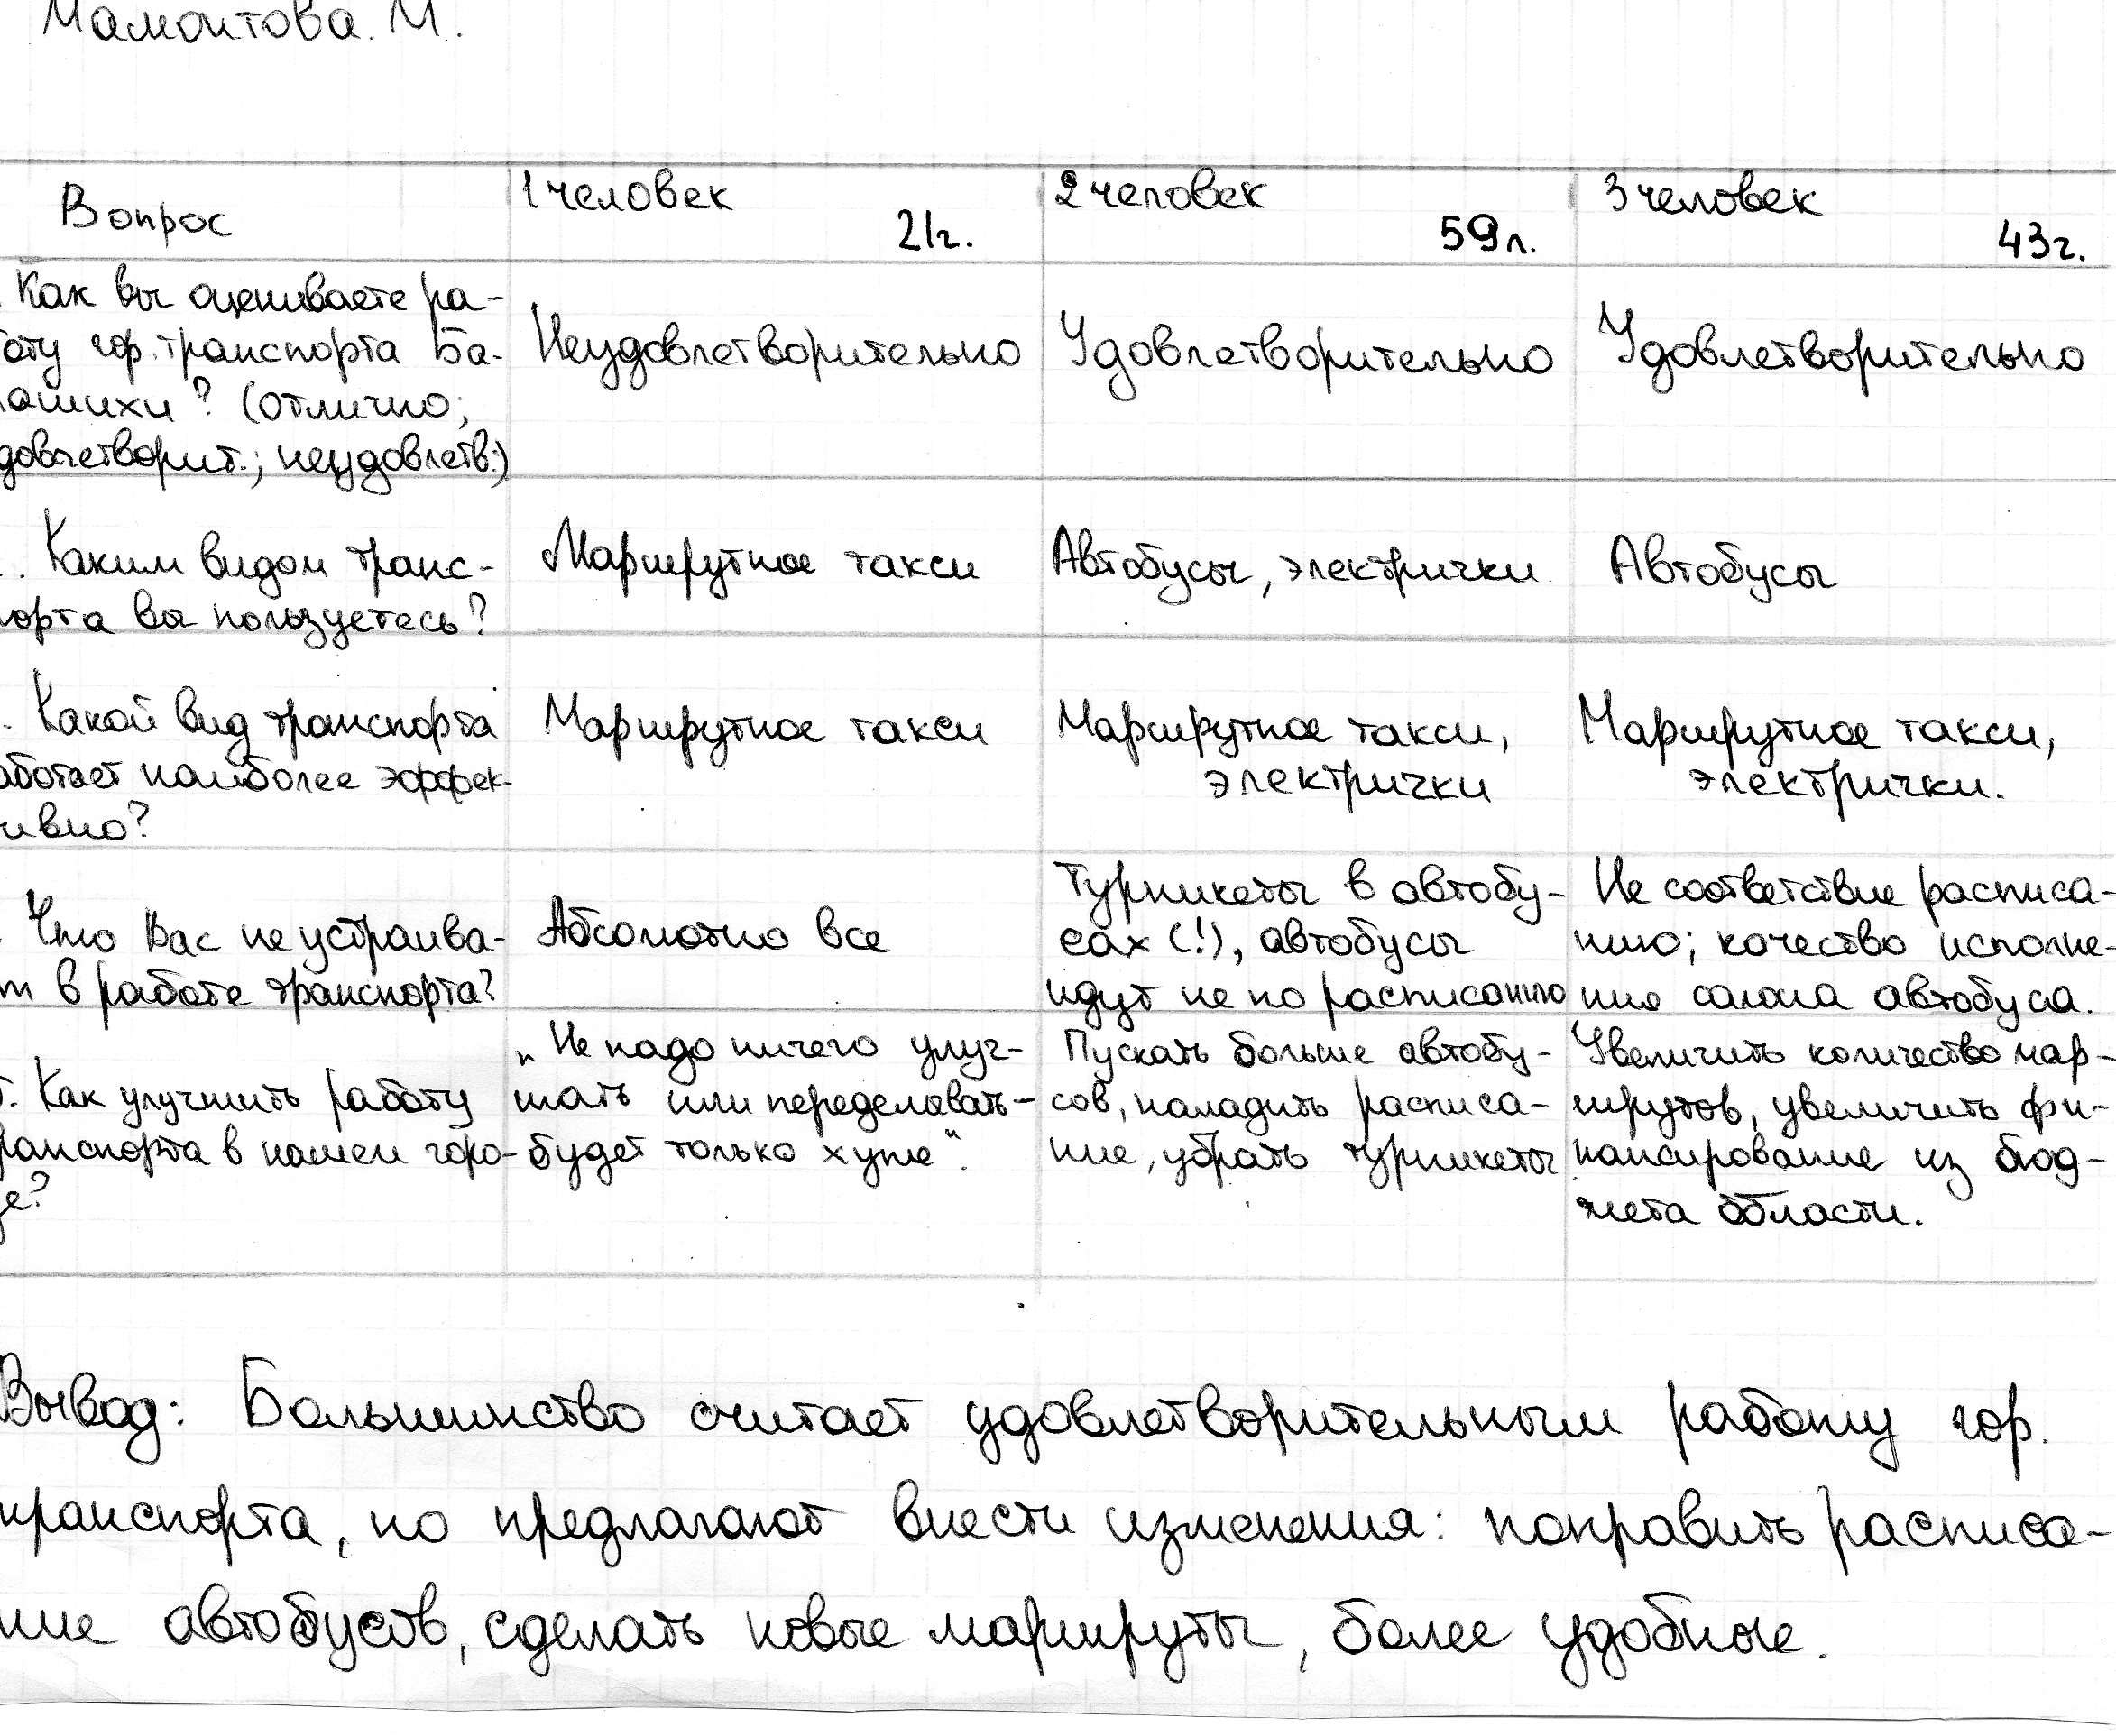 Мамонтова. М.
Вопрос
1 человек
21г.
2 человек
59л.
3 человек
43г.
. Как вы оцениваете ра-
оту гор. транспорта Ба-
лашихи? (отлично;
довлетворит.; неудовлетв.)
Неудовлетворительно
Удовлетворительно
Удовлетворительно
. Каким видом транс-
порта вы пользуетесь?
Маршрутное такси
Автобусы, электрички
Автобусы
. Какой вид транспорта
аботает наиболее эффек-
ивно?
Маршрутное такси
Маршрутное такси,
электрички
Маршрутное такси,
электрички.
. Что Вас не устраива-
т в работе транспорта?
Абсолютно все
Турникеты в автобу-
сах (!), автобусы
идут не по расписанию
Не соответствие расписа-
нию; качество исполне-
ния салона автобуса.
. Как улучшить работу
ранспорта в нашем горо-
де?
„Не надо ничего улуч-
шать или переделовать-
будет только хуже“.
Пускать больше автобу-
сов, наладить расписа-
ние, убрать турникеты
Увеличить количество мар-
шрутов, увеличить фи-
нансирование из бюд-
жета области.
Вывод: Большинство считает удовлетворительным работу гор.
транспорта, но предлагают внести изменения: поправить расписа-
ние автобусов, сделать новые маршруты, более удобные.